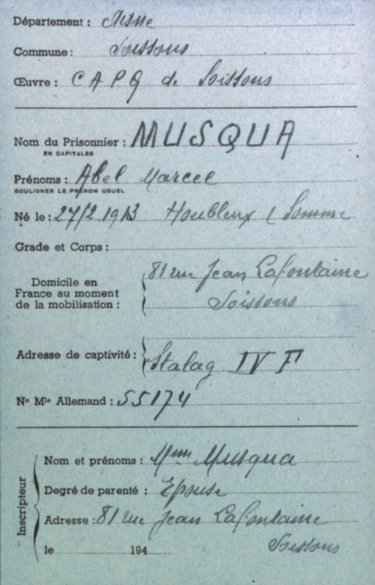 Département : Aisne
Commune : Soissons
Œuvre : CAPG de Soissons
Nom du Prisonnier : MUSQUA
EN CAPITALES
Prénoms : Abel Marcel
SOULIGNER LE PRÉNOM USUEL
Né le : 27/2 1913 Houbleux (Somme
Grade et Corps :
Domicile en
France au moment
de la mobilisation :
81 rue Jean Lafontaine
Soissons
Adresse de captivité : Stalag IV F
No Mle Allemand : 55174
Inscripteur
Nom et prénoms : Mme Musqua
Degré de parenté : Epouse
Adresse : 81 rue Jean Lafontaine
Soissons
le 194